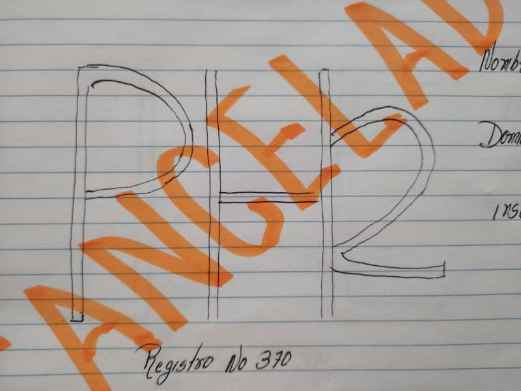 PH2
CANCELAD
Nomb
Dom
ins
Registro No 370